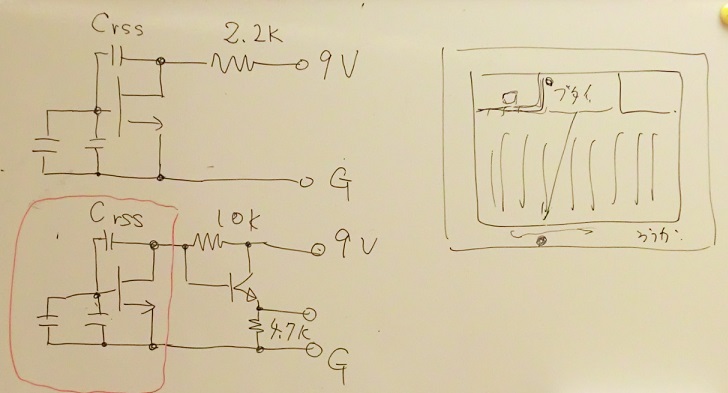 Crss
2.2K
9V
G
Crss
10K
9V
4.7K
G
ブタイ
ろうか